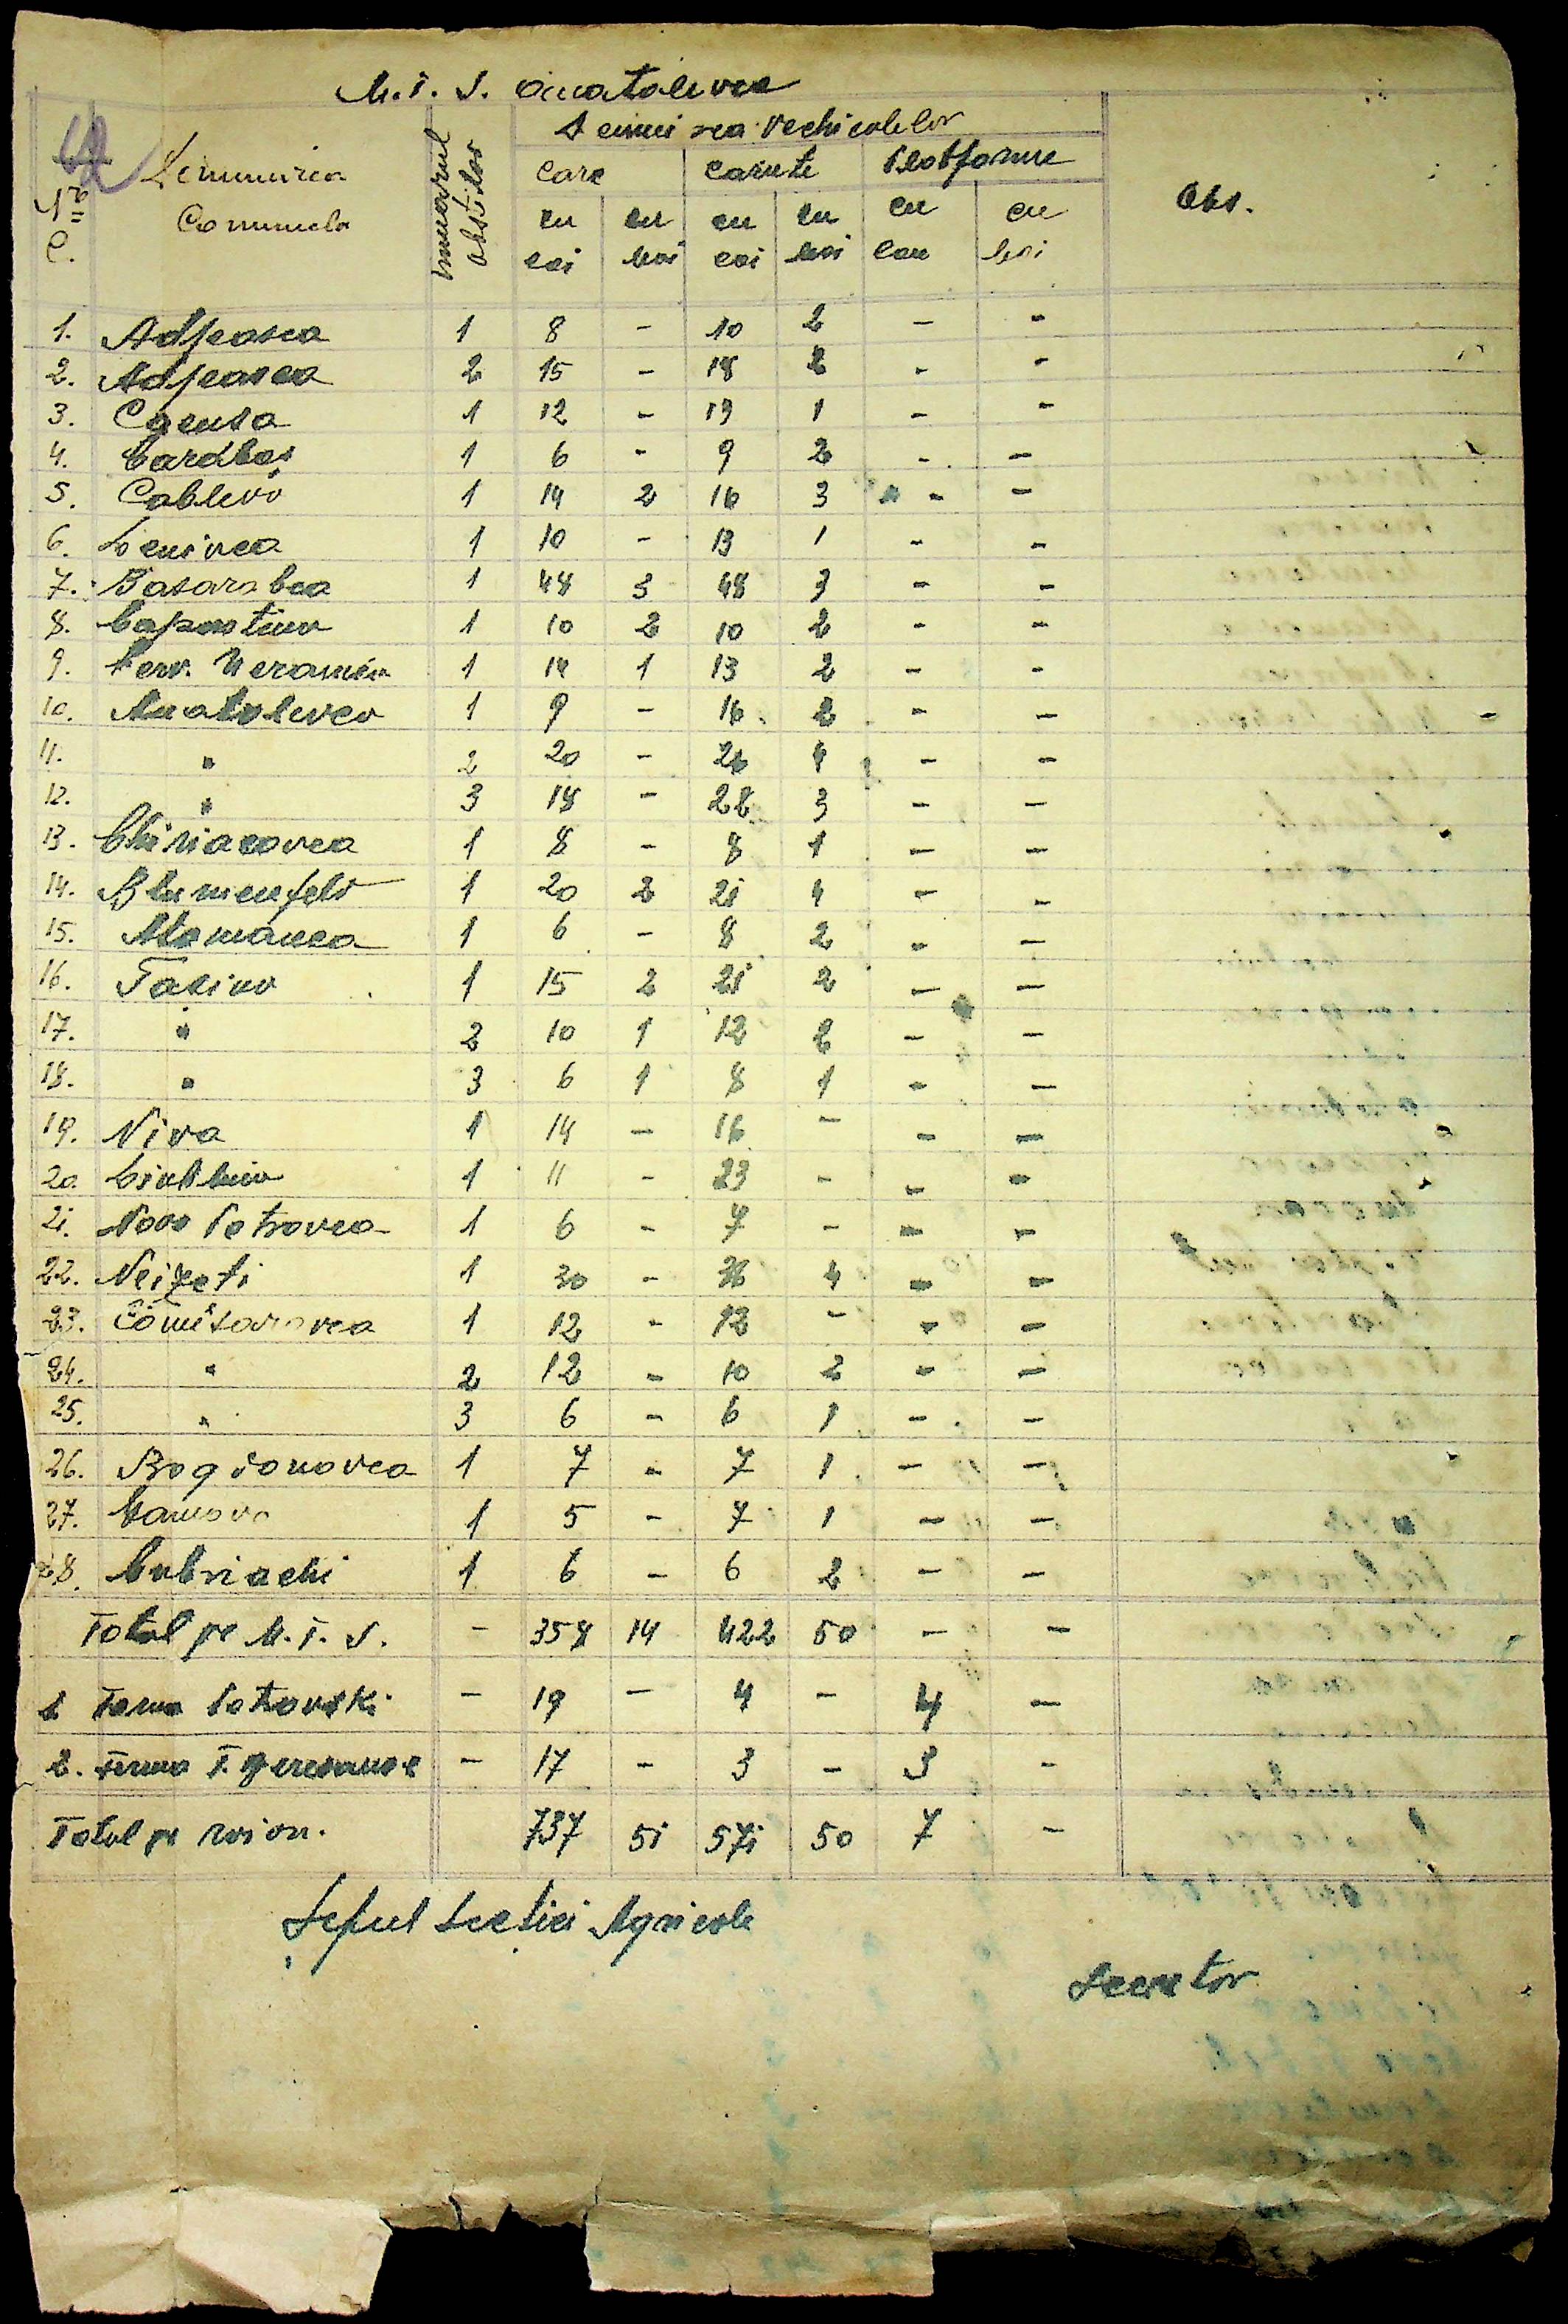 M.T.S. Anatolevca
Denumirea vechicolelor
Nr. C. Denumirea Comunela Numărul obstilor care carute Platforme Obs.
cu cai cu boi cu cai cu boi cu cai cu boi
1. Adjeasca 1 8 - 10 2 - -
2. Adjeasca 2 15 - 18 2 - -
3. Caensa 1 12 - 19 1 - -
4. Cardbas 1 6 - 9 2 - -
5. Coblevo 1 14 2 16 3 - -
6. Lenivca 1 10 - 13 1 - -
7. Basarabca 1 48 3 48 3 - -
8. Capustino 1 10 2 10 2 - -
9. Cerv. Ucrainca 1 14 1 13 2 - -
10. Anatolevca 1 9 - 16 2 - -
11. " 2 20 - 26 4 - -
12. " 3 18 - 28 3 - -
13. Chiriacovca 1 8 - 8 1 - -
14. Blumenfeld 1 20 2 21 4 - -
15. Atamanca 1 6 - 8 2 - -
16. Tasino 1 15 2 21 2 - -
17. " 2 10 1 12 2 - -
18. " 3 6 1 8 1 - -
19. Niva 1 14 - 16 - - -
20. 1 11 - 23 - - -
21. Novo Petrovca 1 6 - 7 - - -
22. Neizeti 1 30 - 36 4 - -
23. Comisarovca 1 12 - 12 - - -
24. " 2 12 - 10 2 - -
25. " 3 6 - 6 1 - -
26. Bogdonovca 1 7 - 7 1 - -
27. 1 5 - 7 1 - -
28. Cubriachi 1 6 - 6 2 - -
Total pe M.T.S. - 358 14 422 50 - -
1 Ferma Petrovski - 19 - 4 - 4 -
2. Ferma T. - 17 - 3 - 3 -
Total pe raion. 737 51 571 50 7 -
Șeful Secției Agricole
Secretor